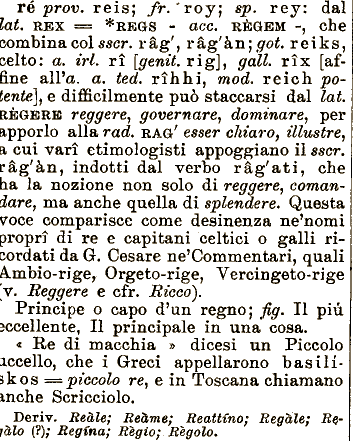 ré prov. reis; fr. roy; sp. rey: dal
lat. REX = *REGS - acc. RÈGEM -, che
combina col sscr. râg', râg'àn; got. reiks,
celto: a. irl. rî [genit. rig], gall. rîx [af-
fine all'a. a. ted. rîhhi, mod. reich po-
tente], e difficilmente può staccarsi dal lat.
RÈGERE reggere, governare, dominare, per
apporlo alla rad. RAG' esser chiaro, illustre,
a cui varî etimologisti appoggiano il sscr.
râg'àn, indotti dal verbo râg'ati, che
ha la nozione non solo di reggere, coman-
dare, ma anche quella di splendere. Questa
voce comparisce come desinenza ne'nomi
proprî di re e capitani celtici o galli ri-
cordati da G. Cesare ne'Commentari, quali
Ambio-rige, Orgeto-rige, Vercingeto-rige
(v. Reggere e cfr. Ricco).
Principe o capo d'un regno; fig. Il più
eccellente, Il principale in una cosa.
« Re di macchia » dicesi un Piccolo
uccello, che i Greci appellarono basilí-
skos = piccolo re, e in Toscana chiamano
anche Scricciolo.
Deriv. Reàle; Reàme; Reattíno; Regàle; Re-
gàlo (?); Regína; Règio; Règolo.